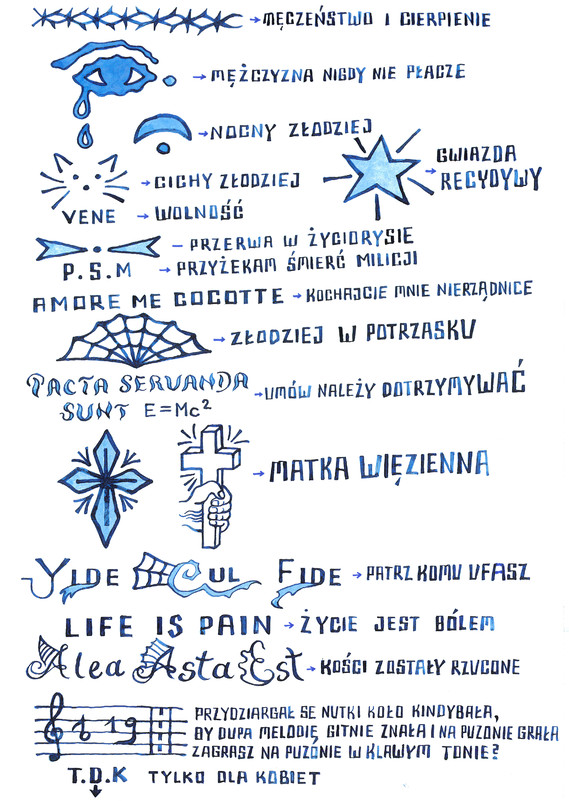 MĘCZEŃSTWO I CIERPIENIE
MĘŻCZYZNA NIGDY NIE PŁACZE
NOCNY ZŁODZIEJ
GWIAZDA
RECYDYWY
CICHY ZŁODZIEJ
VENE WOLNOŚĆ
PRZERWA W ŻYCIORYSIE
P.S.M PRZYŻEKAM ŚMIERĆ MILICJI
AMORE ME COCOTTE KOCHAJCIE MNIE NIERZĄDNICE
ZŁODZIEJ W POTRZASKU
PACTA SERVANDA
SUNT E=Mc² UMÓW NALEŻY DOTRZYMYWAĆ
MATKA WIĘZIENNA
VIDE CUI FIDE PATRZ KOMU UFASZ
LIFE IS PAIN ŻYCIE JEST BÓLEM
Alea Jasta Est KOŚCI ZOSTAŁY RZUCONE
PRZYDZIARGAŁ SE NUTKI KOŁO KINDYBAŁA,
BY DUPA MELODIĘ GITNIE ZNAŁA I NA PUZONIE GRAŁA
ZAGRASZ NA PUZONIE W KLAWYM TONIE?
T.D.K TYLKO DLA KOBIET